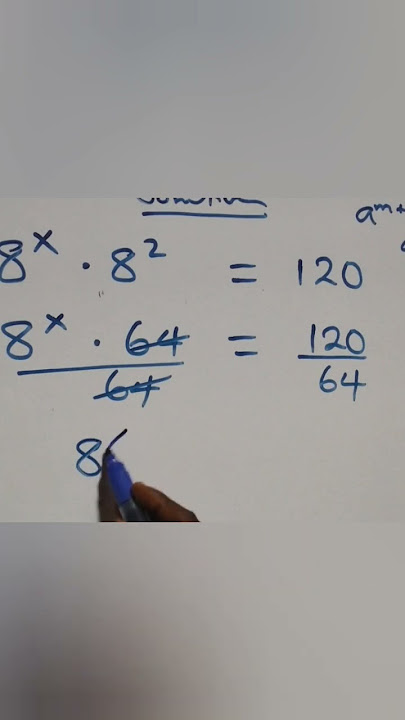 a^{m+
8^x · 8^2 = 120
\frac{8^x · 64}{64} = \frac{120}{64}
8